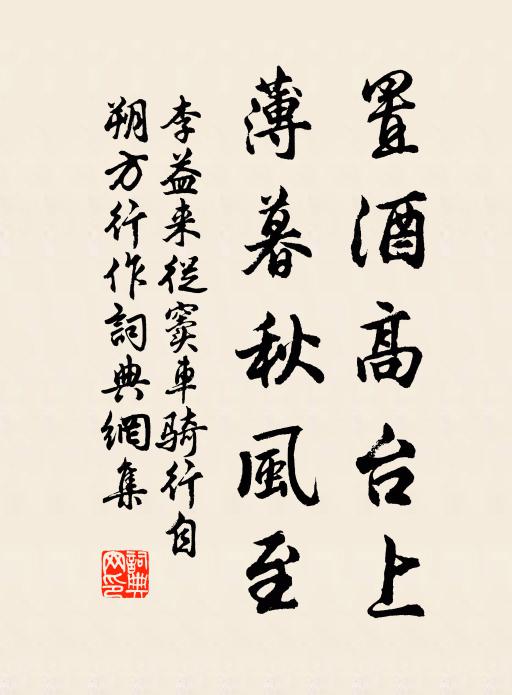 置酒高台上
薄暮秋風至
李益来從竇車騎行自
朔方行作詞典網集
詞典
网印